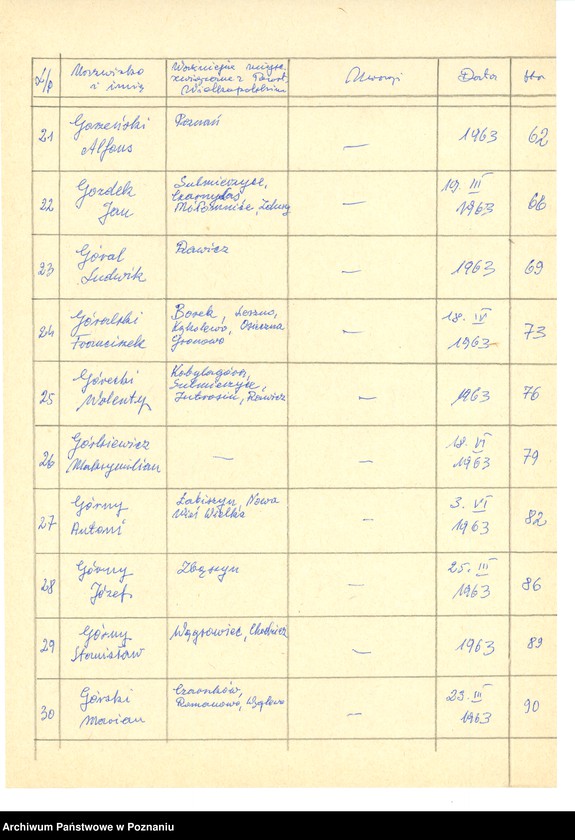 L/p Nazwisko i imię Ważniejsze miejsc. związane z Powst. Wielkopolskim Uwagi Data str
21 Gorzeński Alfons Poznań — 1963 62
22 Gozdek Jan Sulmierzyce, Czarnylas Miłosławice, Zduny — 19. III 1963 66
23 Góral Ludwik Rawicz — 1963 69
24 Góralski Franciszek Borek, Leszno, Kąkolewo, Osieczna Gronowo — 18. IV 1963 73
25 Górecki Walenty Kobylagóra, Sulmierzyce, Jutrosin, Rawicz — 1963 76
26 Górkiewicz Maksymilian — — 18. VI 1963 79
27 Górny Antoni Łabiszyn, Nowa Wieś Wielka — 3. VI 1963 82
28 Górny Józef Zbąszyn — 25. III 1963 86
29 Górny Stanisław Wągrowiec, Chodzież — 1963 89
30 Górski Marian Czarnków, Romanowo, — 23. III 1963 90
Archiwum Państwowe w Poznaniu